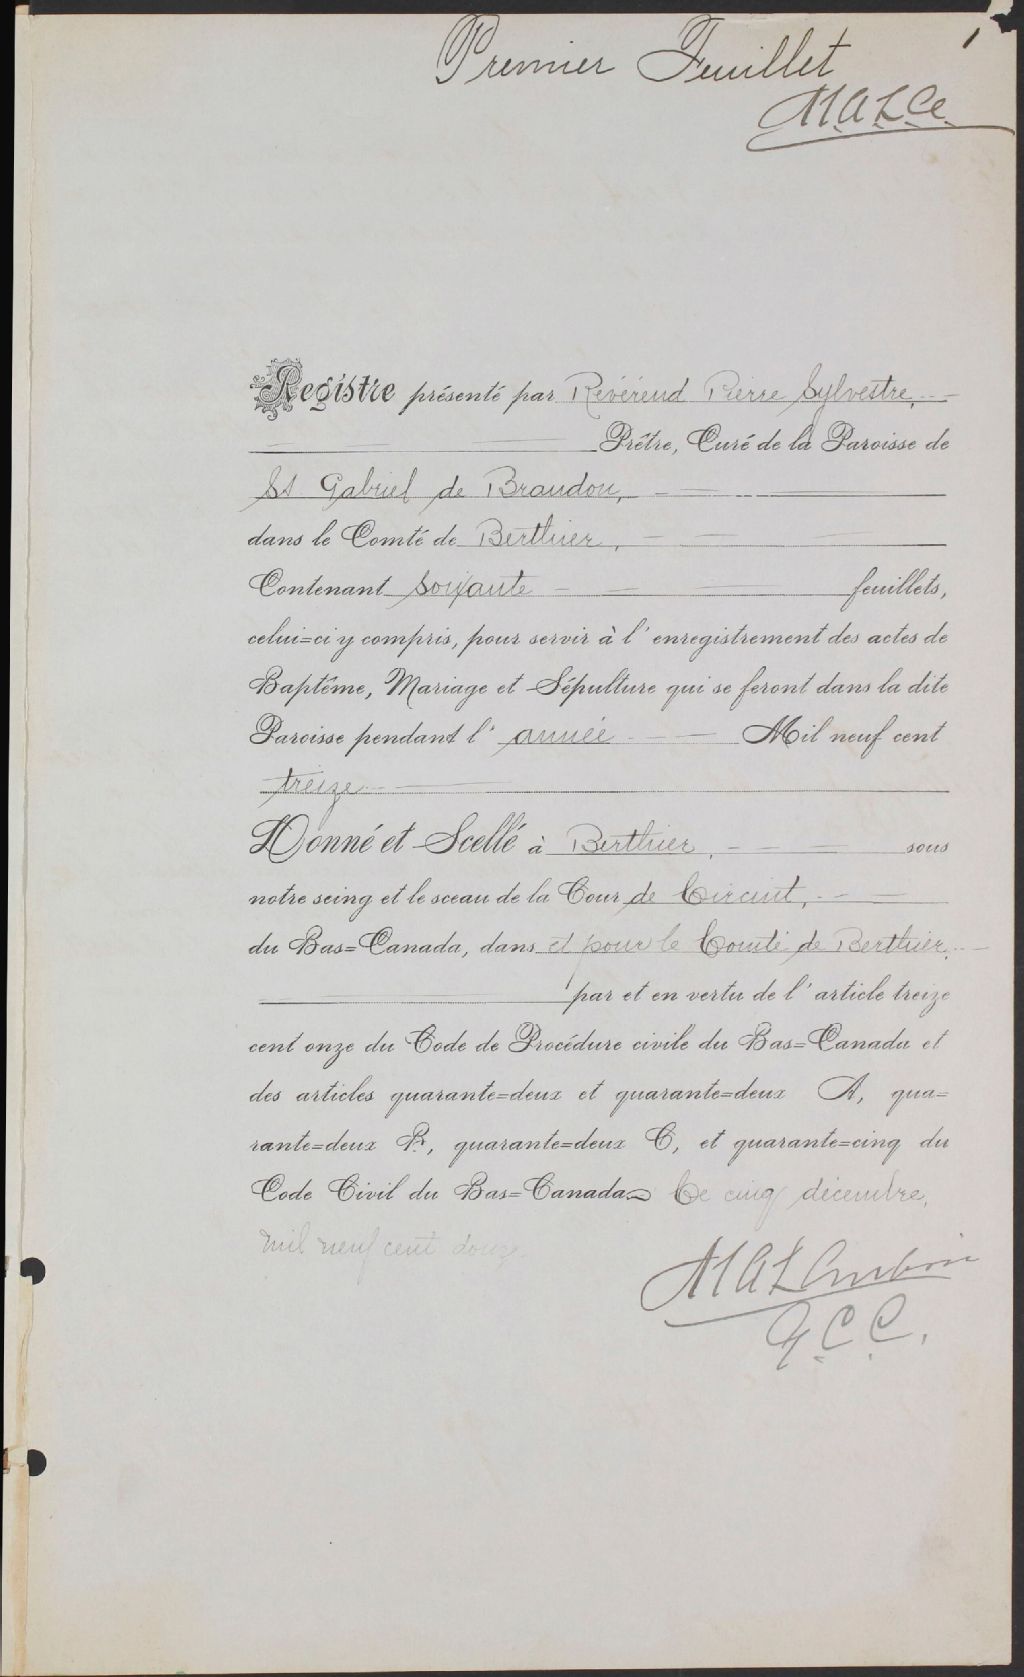 1
Premier Feuillet
M.A.L.
Registre présenté par Révérend Pierre Sylvestre,
Prêtre, Curé de la Paroisse de
St Gabriel de Brandon,
dans le Comté de Berthier,
Contenant soixante feuillets,
celui=ci y compris, pour servir à l'enregistrement des actes de
Baptême, Mariage et Sépulture qui se feront dans la dite
Paroisse pendant l'année Mil neuf cent
treize
Donné et Scellé à Berthier, sous
notre seing et le sceau de la Cour de Circuit,
du Bas=Canada, dans et pour le Comté de Berthier,
par et en vertu de l'article treize
cent onze du Code de Procédure civile du Bas=Canada et
des articles quarante=deux et quarante=deux A, qua=
rante=deux B, quarante=deux C, et quarante=cinq du
Code Civil du Bas=Canada. Ce cinq décembre,
mil neuf cent douze
M A L
G.C.C.